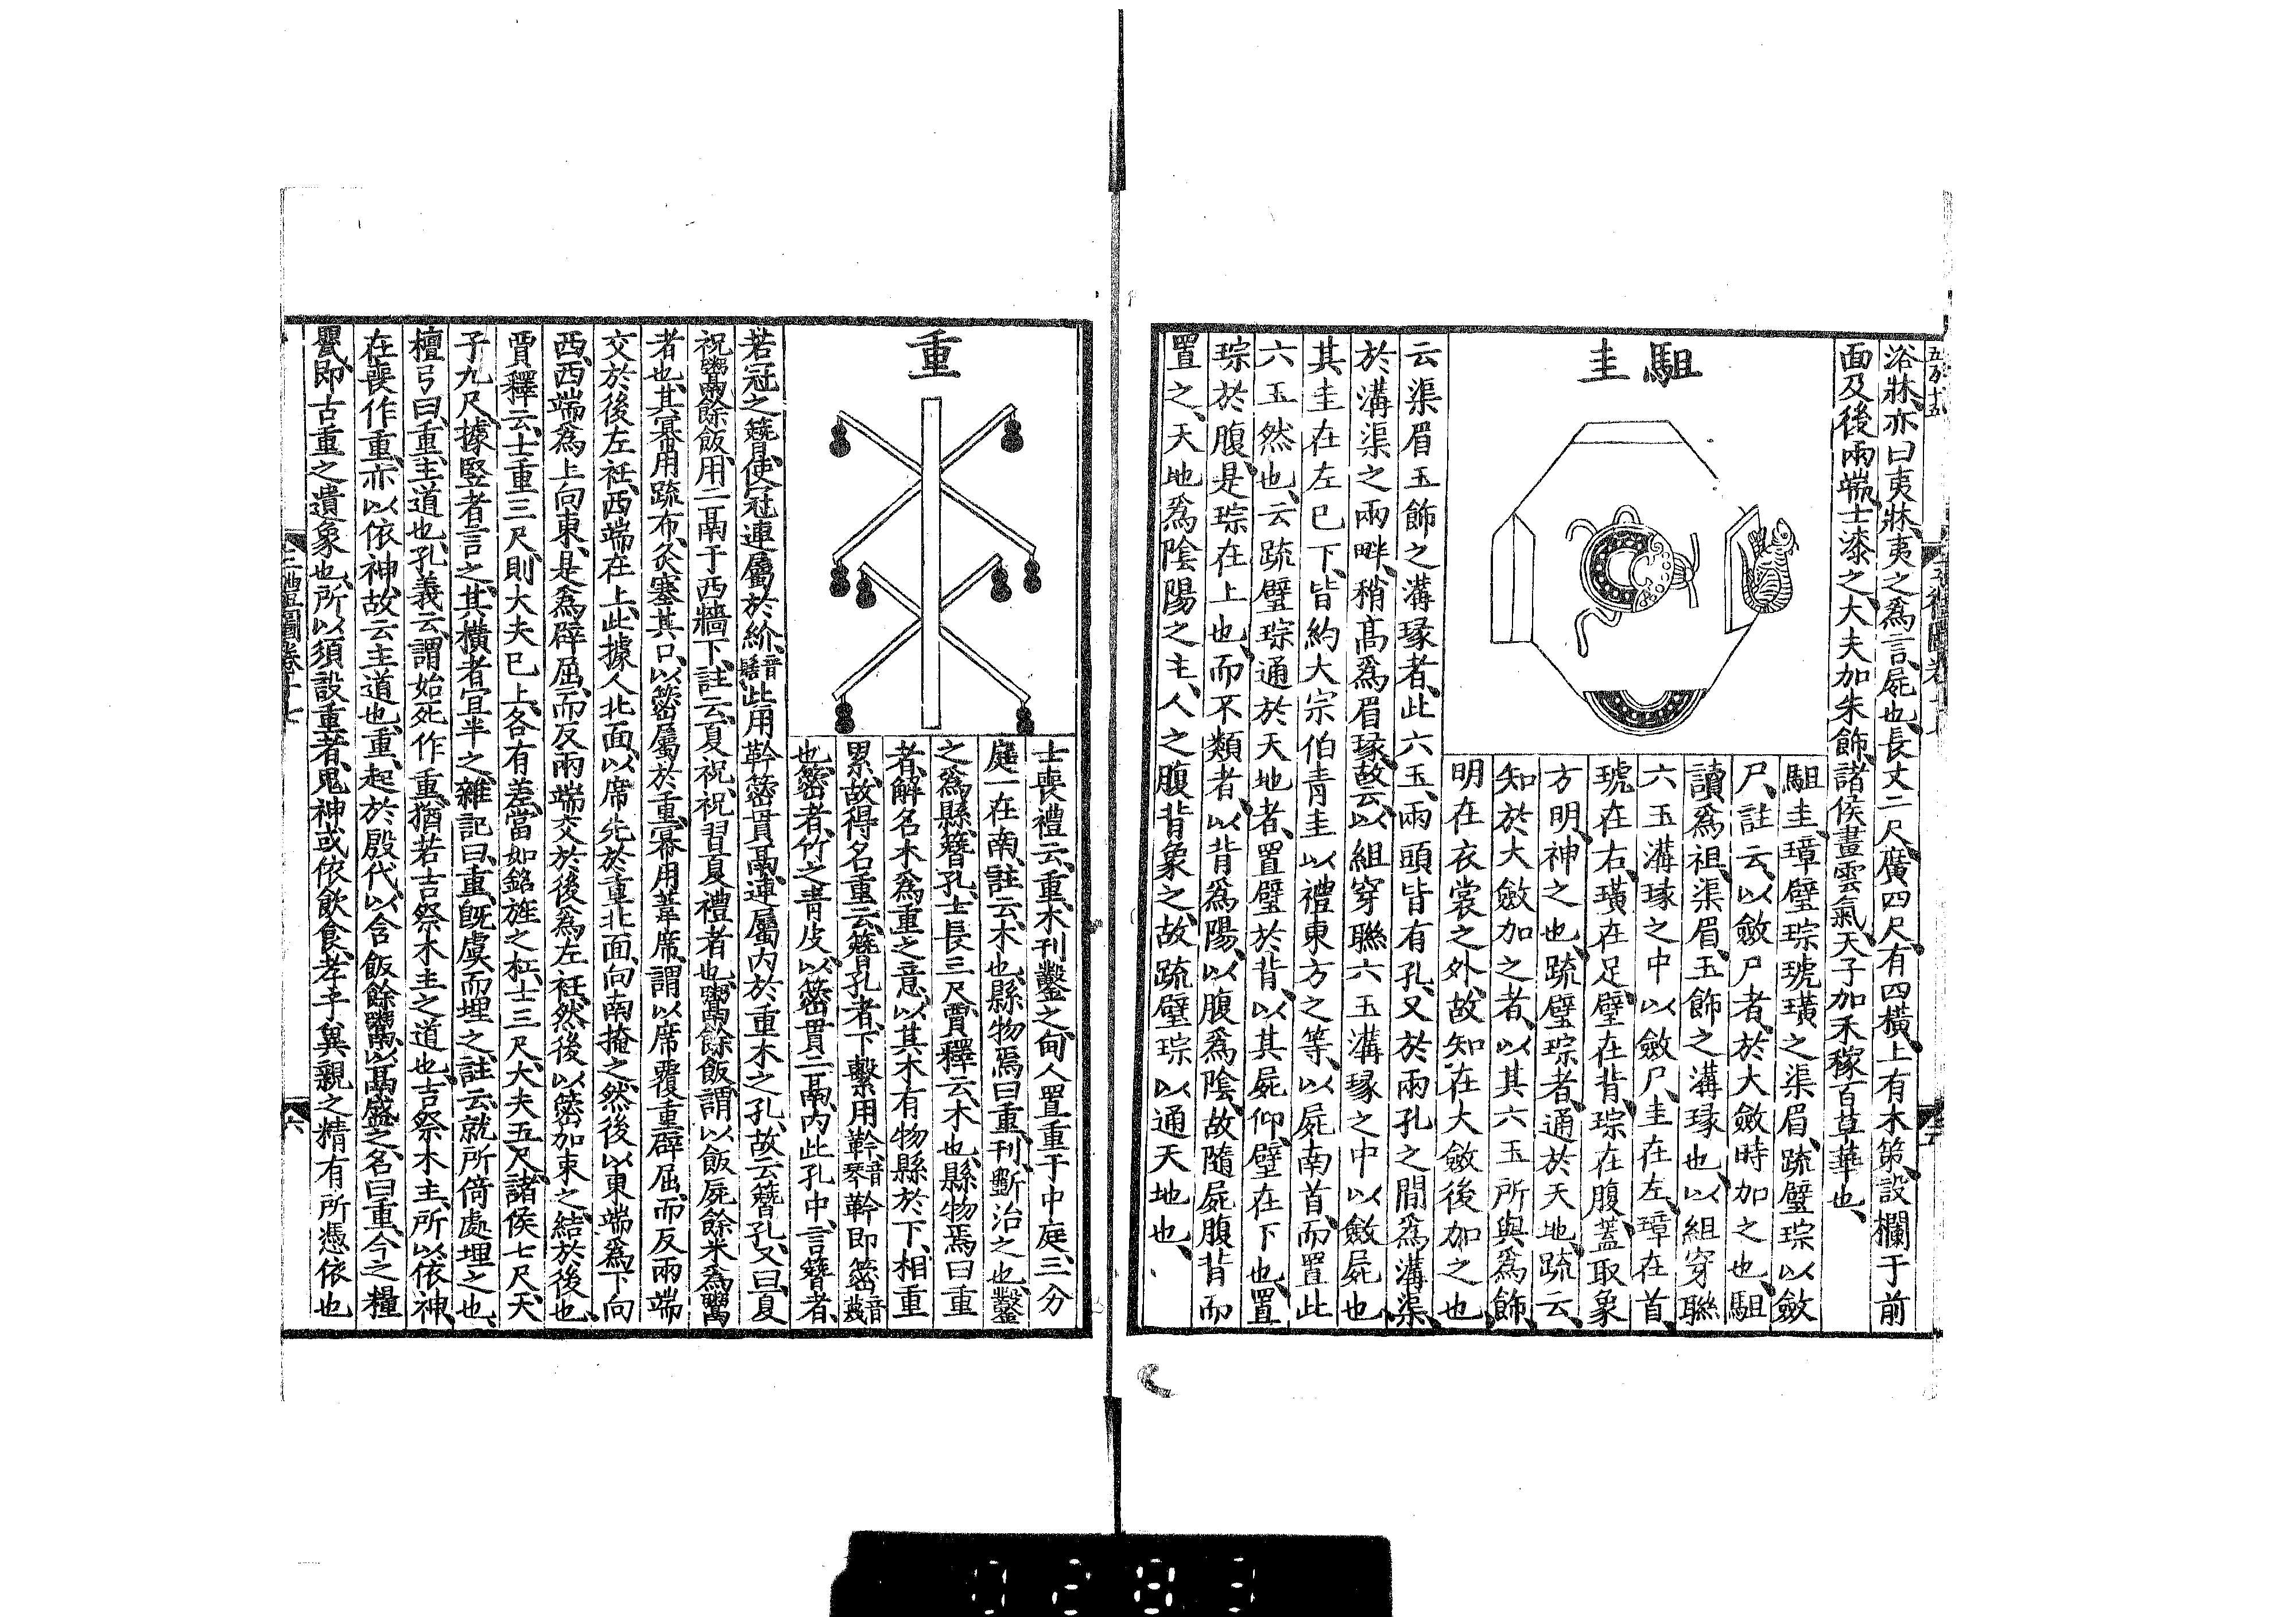 浴牀、亦曰夷牀、夷之爲言、屍也、長丈二尺、廣四尺、有四橫、上有木第、設欄于前
面及後兩端、士漆之、大夫加朱飾、諸侯畫雲氣、天子加禾稼百草華也、
駔圭
駔圭璋璧琮琥璜之渠眉、疏璧琮以斂
尸、註云、以斂尸者、於大斂時加之也、駔
讀爲祖、渠眉、玉飾之溝瑑也、以組穿聯
六玉溝瑑之中以斂尸、圭在左、璋在首、
琥在右、璜在足、璧在背、琮在腹、蓋取象
方明、神之也、疏璧琮者、通於天地、疏云、
知於大斂加之者、以其六玉所與爲飾、
明在衣裳之外、故知在大斂後加之也、
云渠眉玉飾之溝瑑者、此六玉、兩頭皆有孔、又於兩孔之間爲溝渠、
於溝渠之兩畔、稍高爲眉瑑、故云以組穿聯六玉溝瑑之中以斂屍也
其圭在左已下、皆約大宗伯青圭以禮東方之等、以屍南首、而置此
六玉然也、云疏璧琮通於天地者、置璧於背、以其屍仰、璧在下也、置
琮於腹、是琮在上也、而不類者、以背爲陽、以腹爲陰、故隨屍腹背而
置之、天地爲陰陽之主、人之腹背象之、故疏璧琮以通天地也、
重
士喪禮云、重木刊鑿之、甸人置重于中庭、三分
庭一在南、註云、木也、縣物焉曰重、刊、斲治之也、鑿
之爲縣簪孔、士長三尺、賈釋云、木也、縣物焉曰重
者、解名木爲重之意、以其木有物縣於下、相重
累、故得名重、云簪孔者、下繫用靲、音琴靲即䈼音蔑
也、䈼者、竹之青皮、以䈼貫二鬲、內此孔中、言簪者、
若冠之簪、使冠連屬於紒、音髻此用靲䈼貫鬲、連屬內於重木之孔、故云簪孔、又曰、夏
祝鬻餘飯、用二鬲于西牆下、註云、夏祝、祝習夏禮者也、鬻餘飯、謂以飯屍餘米爲鬻
者也、其冪用疏布、灸塞其口、以䈼屬於重、冪用葦席、謂以席覆重、辟屈、而反兩端
交於後左衽、西端在上、此據人北面、以席先於重北面、向南掩之、然後以東端爲下向
西、西端爲上向東、是爲辟屈、而反兩端交於後爲左衽、然後以䈼加束之、結於後也、
賈釋云、士重三尺、則大夫已上、各有差、當如銘旌之杠、士三尺、大夫五尺、諸侯七尺、天
子九尺、據竪者言之、其橫者宜半之、雜記曰、重、既虞而埋之、註云、就所倚處埋之也、
檀弓曰、重、主道也、孔義云、謂始死作重、猶若吉祭木主之道也、吉祭木主、所以依神、
在喪作重、亦以依神、故云主道也、重、起於殷代、以含飯餘鬻以鬲盛之、名曰重、今之糧
甖、即古重之遺象也、所以須設重者、鬼神或依飲食、孝子冀親之精有所憑依也
三禮圖卷十七
六
0283